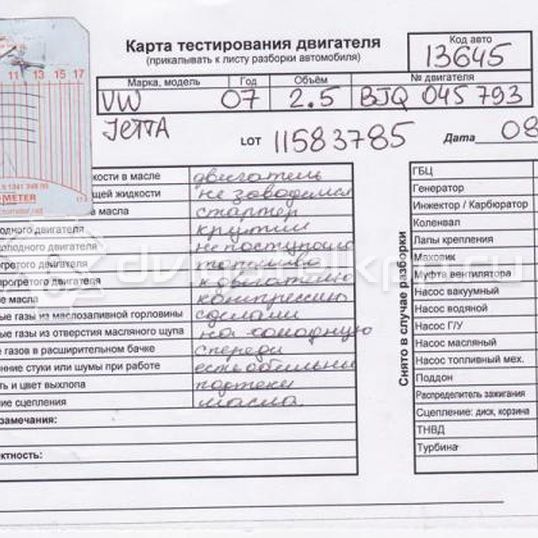 Карта тестирования двигателя
(прикалывать к листу разборки автомобиля)
Код авто
13645
Марка, модель Год Объём № двигателя
VW 07 2.5 BJQ 045793
JETTA
LOT 11583785 Дата 08
11 13 15 17
METER
кости в масле двигатель
щей жидкости не заводился
масла стартер
одного двигателя крутил
олодного двигателя не поступало
огретого двигателя топливо
рогретого двигателя к двигателю
ие масла компрессию
ые газы из маслозаливной горловины сделали
ые газы из отверстия масляного щупа на холодную
газов в расширительном бачке спереди
нние стуки или шумы при работе есть обильны
ть и цвет выхлопа подтеки
ние сцепления масла
римечания:
ектность:
Снято в случае разборки
ГБЦ
Генератор
Инжектор / Карбюратор
Коленвал
Лапы крепления
Маховик
Муфта вентилятора
Насос вакуумный
Насос водяной
Насос Г/У
Насос масляный
Насос топливный мех.
Поддон
Распределитель зажигания
Сцепление: диск, корзина
ТНВД
Турбина